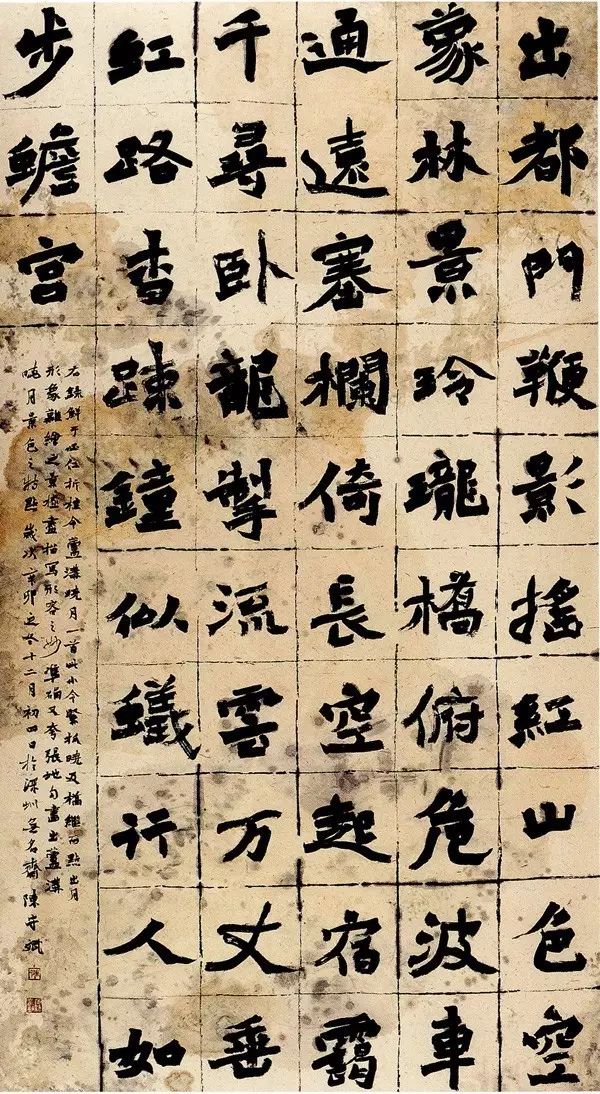 出都門鞭影搖紅山色空
蒙林景玲瓏橋俯危波車
通遠塞欄倚長空起宿靄
千尋卧龍掣流雲万丈垂
虹路杳踈鐘似蟻行人如
步蟾宫
右録鮮于必仁折桂令蘆溝曉月一首此小令緊扣曉及橋繼而點出月
形象難繪之景極盡描寫形容之妙準确又夸張地勾畫出蘆溝
曉月景色之特點歲次辛卯之冬十二月初四日於深圳無名齋陳守